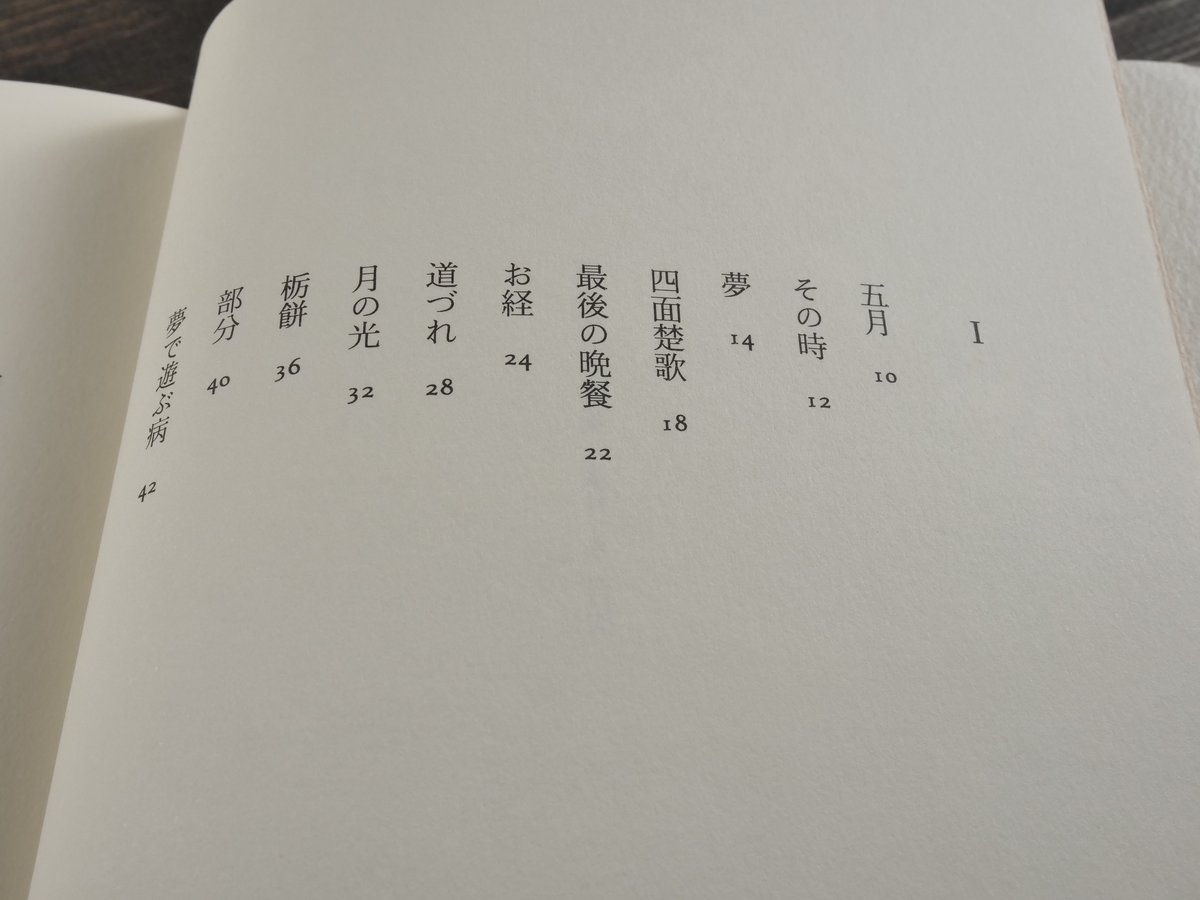 I
五月 10
その時 12
夢 14
四面楚歌 18
最後の晩餐 22
お経 24
道づれ 28
月の光 32
栃餅 36
部分 40
夢で遊ぶ病 42